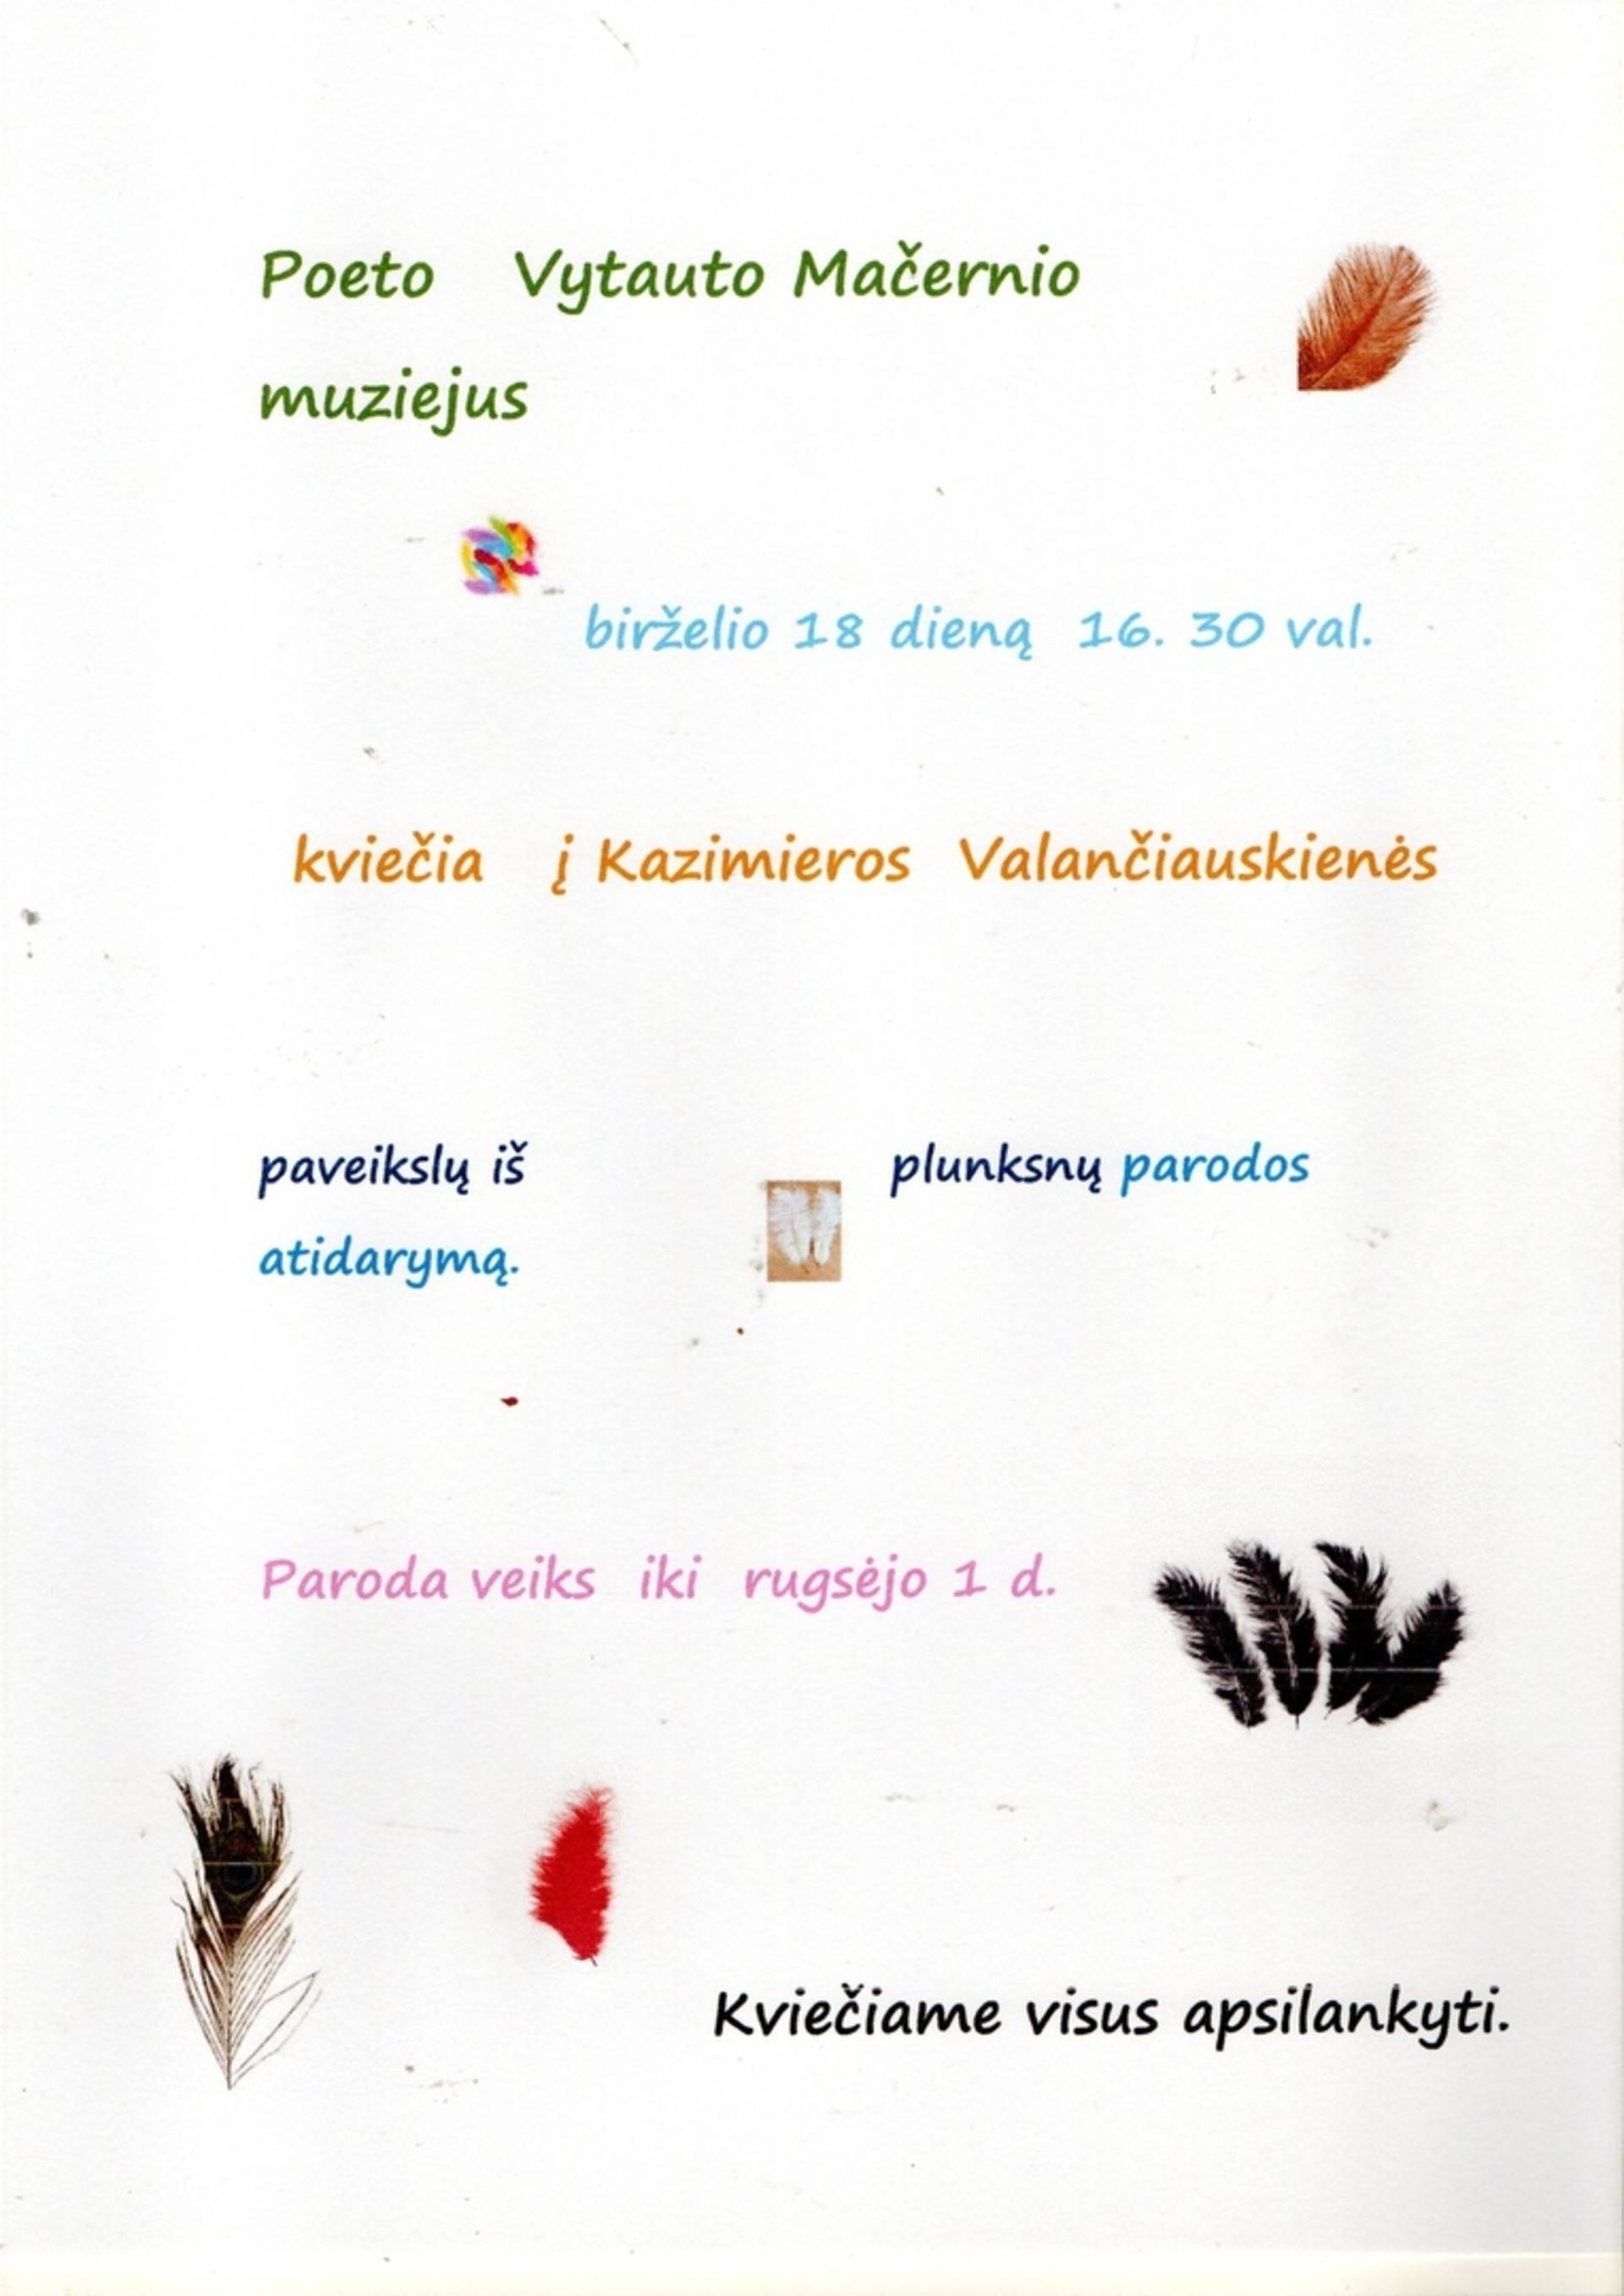 Poeto Vytauto Mačernio
muziejus
birželio 18 dieną 16. 30 val.
kviečia į Kazimieros Valančiauskienės
paveikslų iš plunksnų parodos
atidarymą.
Paroda veiks iki rugsėjo 1 d.
Kviečiame visus apsilankyti.